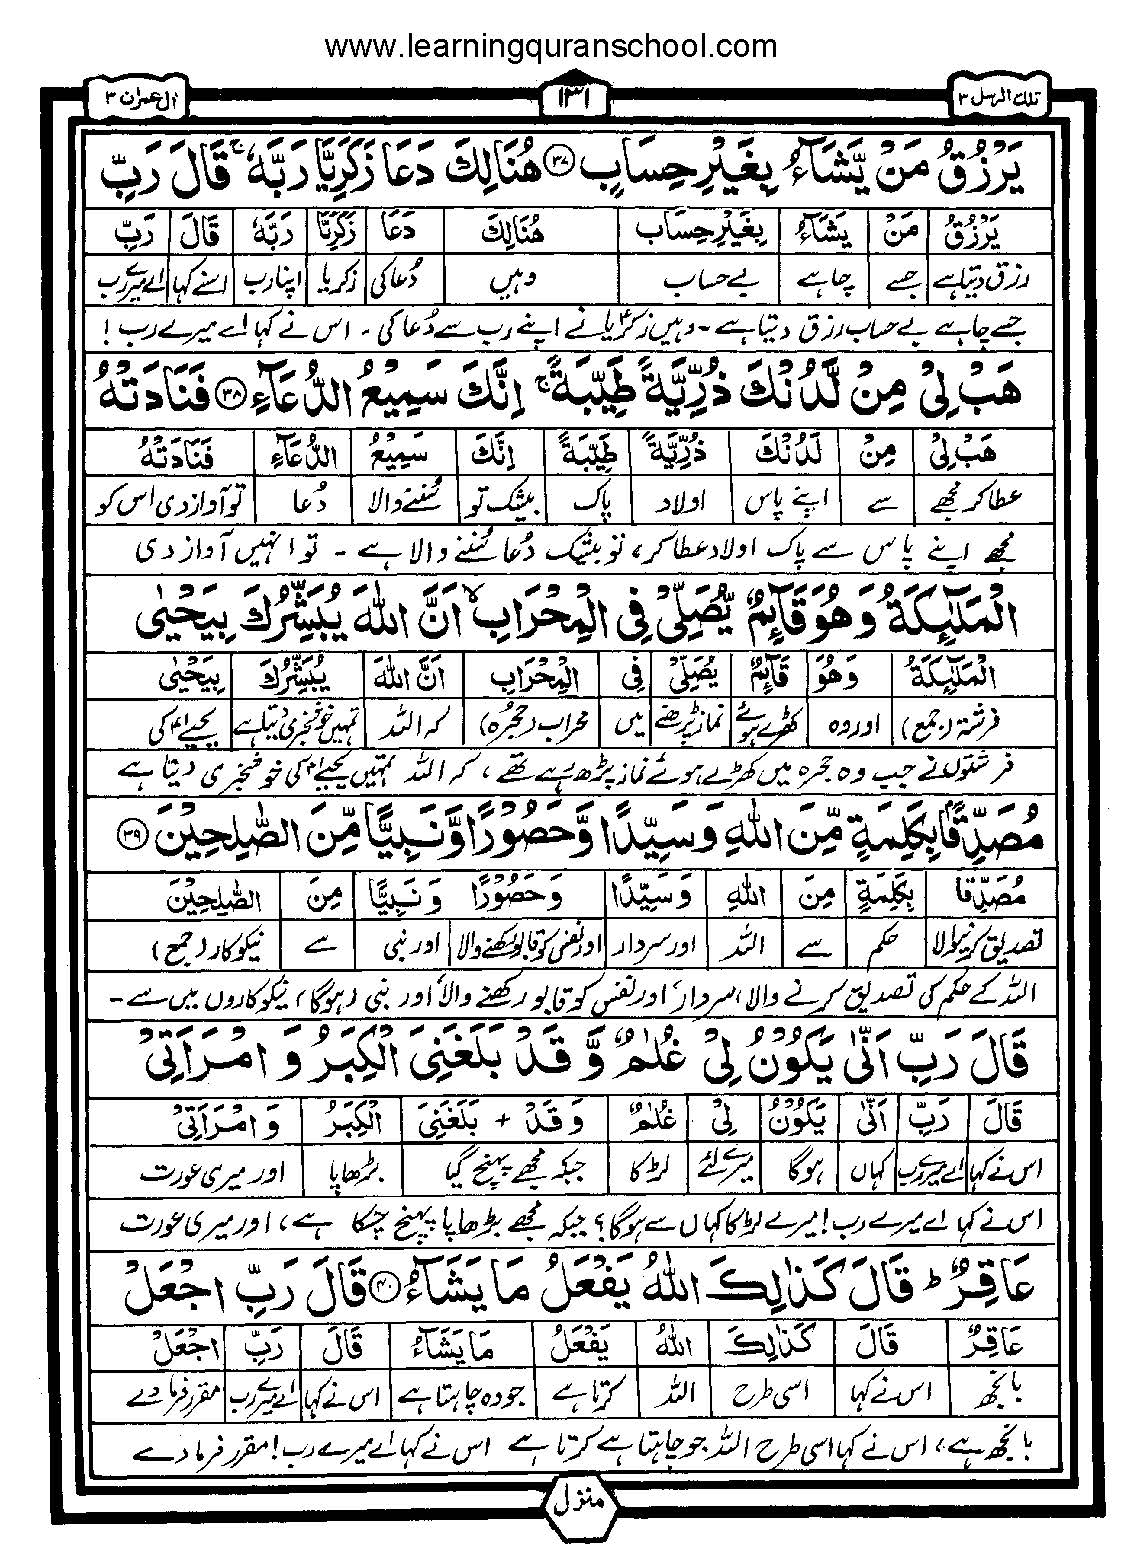 www.learningquranschool.com
تلك الرسل ۳
۱۳۱
ال عمران ۳
يَرْزُقُ مَنْ يَّشَآءُ بِغَيْرِ حِسَابٍ ۳۷ هُنَالِكَ دَعَا زَكَرِيَّا رَبَّهٗ ۚ قَالَ رَبِّ
يَرْزُقُ مَنْ يَشَآءُ بِغَيْرِ حِسَابٍ هُنَالِكَ دَعَا زَكَرِيَّا رَبَّهٗ قَالَ رَبِّ
رزق دیتا ہے جسے چاہے بے حساب وہیں دُعا کی زکریا اپنا رب اسنے کہا اے میرے رب
جسے چاہے بے حساب رزق دیتا ہے ۔ وہیں زکریا نے اپنے رب سے دُعا کی ۔ اس نے کہا اے میرے رب !
هَبْ لِیْ مِنْ لَّدُنْكَ ذُرِّيَّةً طَيِّبَةً ۚ اِنَّكَ سَمِيْعُ الدُّعَآءِ ۳۸ فَنَادَتْهُ
هَبْ لِیْ مِنْ لَدُنْكَ ذُرِّيَّةً طَيِّبَةً اِنَّكَ سَمِيْعُ الدُّعَآءِ فَنَادَتْهُ
عطا کر مجھے سے اپنے پاس اولاد پاک بیشک تو سُننے والا دُعا تو آواز دی اس کو
مجھے اپنے پاس سے پاک اولاد عطا کر، تو بیشک دُعا سُننے والا ہے ۔ تو انہیں آواز دی
الْمَلٰٓئِكَةُ وَهُوَ قَآئِمٌ يُّصَلِّیْ فِی الْمِحْرَابِ ۙ اَنَّ اللّٰهَ يُبَشِّرُكَ بِيَحْيٰى
الْمَلٰٓئِكَةُ وَهُوَ قَآئِمٌ يُصَلِّیْ فِی الْمِحْرَابِ اَنَّ اللّٰهَ يُبَشِّرُكَ بِيَحْيٰى
فرشتہ (جمع) اور وہ کھڑے ہوئے نماز پڑھنے میں محراب (حجرہ) کہ اللہ تمہیں خوشخبری دیتا ہے یحییٰ کی
فرشتوں نے جب وہ حجرہ میں کھڑے ہوئے نماز پڑھ رہے تھے، کہ اللہ تمہیں یحییٰ کی خوشخبری دیتا ہے
مُصَدِّقًۢا بِكَلِمَةٍ مِّنَ اللّٰهِ وَسَيِّدًا وَّحَصُوْرًا وَّنَبِيًّا مِّنَ الصّٰلِحِيْنَ ۳۹
مُصَدِّقًا بِكَلِمَةٍ مِنَ اللّٰهِ وَسَيِّدًا وَحَصُوْرًا وَنَبِيًّا مِنَ الصّٰلِحِيْنَ
تصدیق کرنیوالا حکم سے اللہ اور سردار اور نفس کو قابو رکھنے والا اور نبی سے نیکوکار (جمع)
اللہ کے حکم کی تصدیق کرنے والا، سردار، اور نفس کو قابو رکھنے والا، اور نبی (ہوگا) نیکوکاروں میں سے ۔
قَالَ رَبِّ اَنّٰى يَكُوْنُ لِیْ غُلٰمٌ وَّ قَدْ بَلَغَنِیَ الْكِبَرُ وَ امْرَاَتِیْ
قَالَ رَبِّ اَنّٰى يَكُوْنُ لِیْ غُلٰمٌ وَ قَدْ + بَلَغَنِیَ الْكِبَرُ وَ امْرَاَتِیْ
اس نے کہا اے میرے رب کہاں ہوگا میرے لئے لڑکا جبکہ مجھے پہنچ گیا بڑھاپا اور میری عورت
اس نے کہا اے میرے رب! میرے لڑکا کہاں سے ہوگا؟ جبکہ مجھے بڑھاپا پہنچ چکا ہے، اور میری عورت
عَاقِرٌ ؕ قَالَ كَذٰلِكَ اللّٰهُ يَفْعَلُ مَا يَشَآءُ ۴۰ قَالَ رَبِّ اجْعَلْ
عَاقِرٌ قَالَ كَذٰلِكَ اللّٰهُ يَفْعَلُ مَا يَشَآءُ قَالَ رَبِّ اجْعَلْ
بانجھ اس نے کہا اسی طرح اللہ کرتا ہے جو وہ چاہتا ہے اس نے کہا اے میرے رب مقرر فرما دے
بانجھ ہے، اس نے کہا اسی طرح اللہ جو چاہتا ہے کرتا ہے اس نے کہا اے میرے رب! مقرر فرما دے
منزل